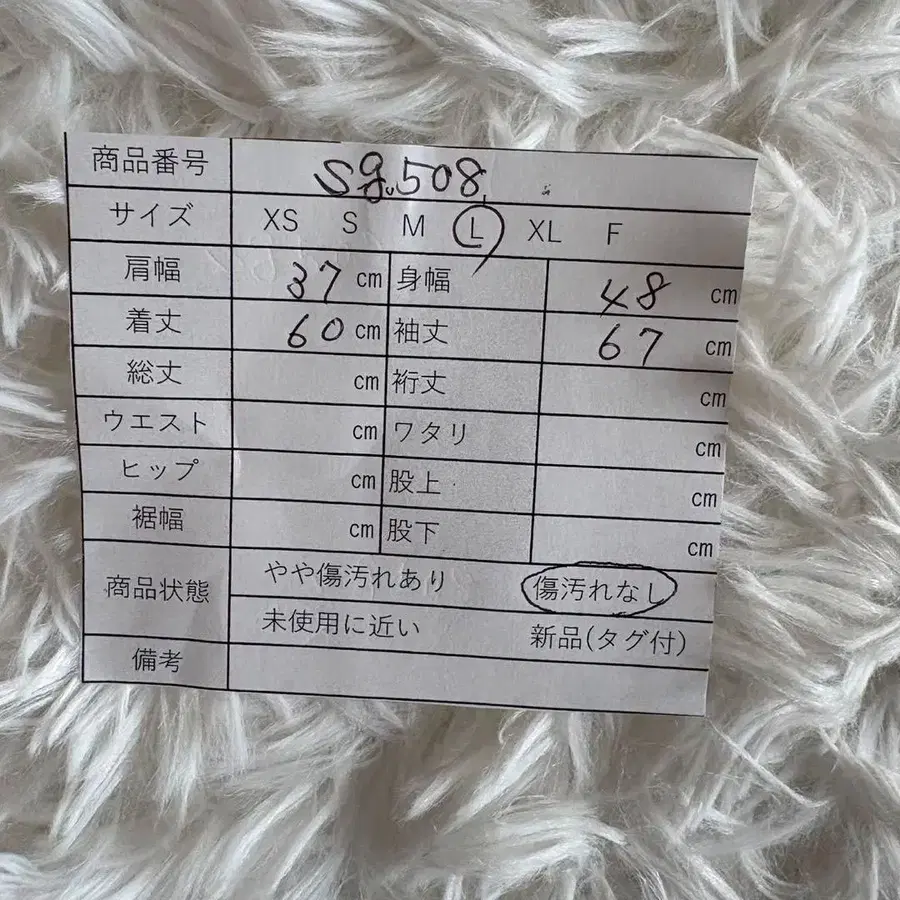 商品番号 sg.508
サイズ XS S M L XL F
肩幅 37 cm 身幅 48 cm
着丈 60 cm 袖丈 67 cm
総丈 cm 裄丈 cm
ウエスト cm ワタリ cm
ヒップ cm 股上 cm
裾幅 cm 股下 cm
商品状態 やや傷汚れあり 傷汚れなし
未使用に近い 新品(タグ付)
備考